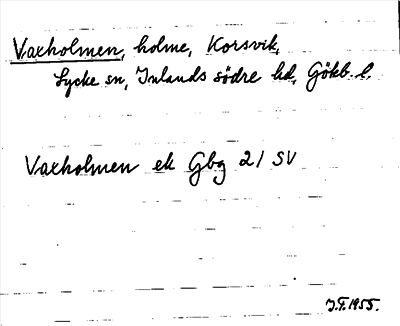 Vaxholmen, holme, Korsvik,
Lycke sn, Inlands södre hd, Götb. l.
Vaxholmen ek Gbg 21 SV
J.F. 1955.